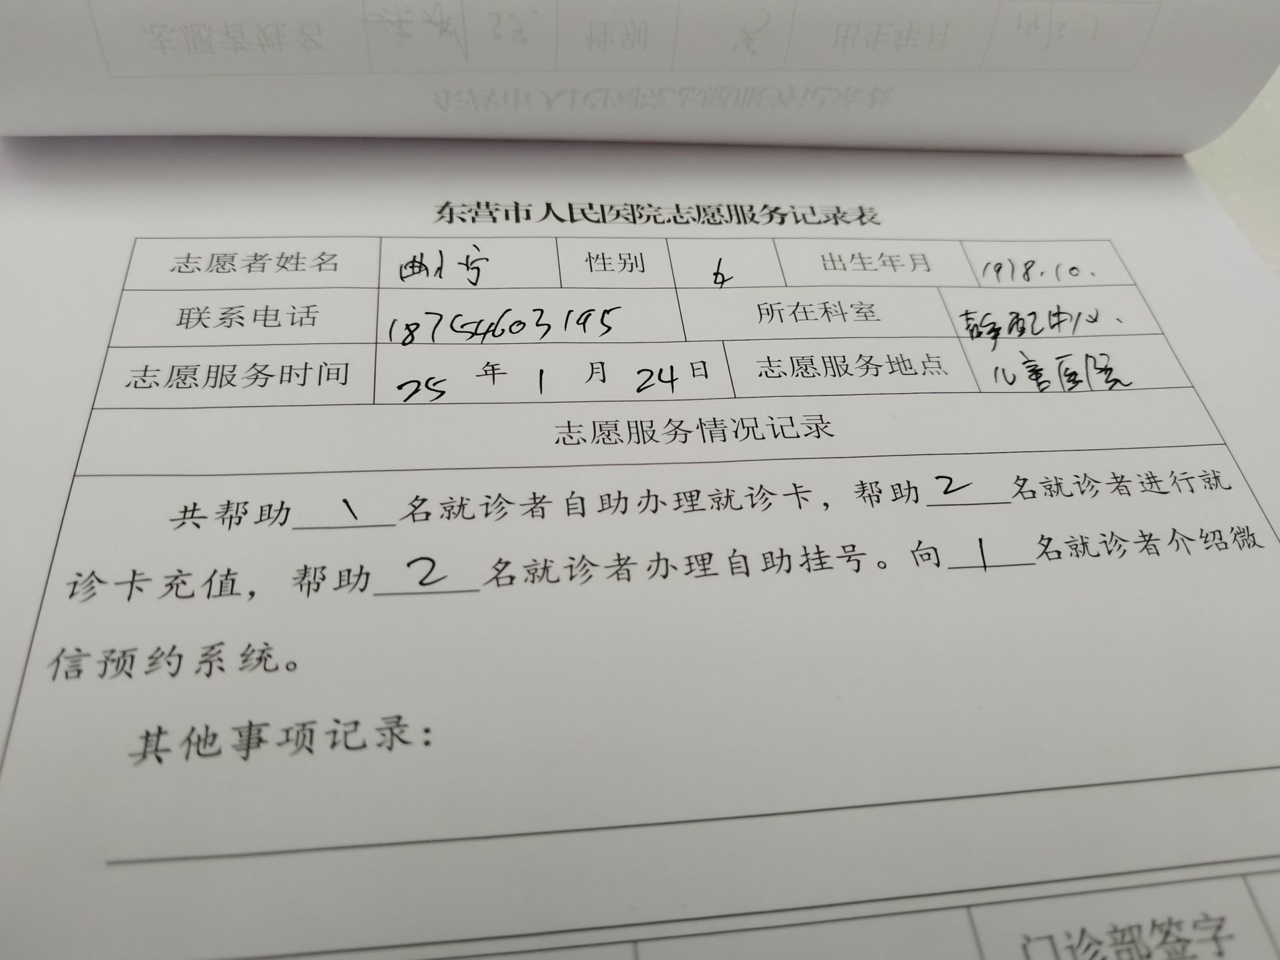 东营市人民医院志愿服务记录表
志愿者姓名 曲小宁 性别 女 出生年月 1978.10.
联系电话 18754603195 所在科室 静配中心.
志愿服务时间 25年1月24日 志愿服务地点 儿童医院
志愿服务情况记录
共帮助 1 名就诊者自助办理就诊卡，帮助 2 名就诊者进行就
诊卡充值，帮助 2 名就诊者办理自助挂号。向 1 名就诊者介绍微
信预约系统。
其他事项记录：
门诊部签字